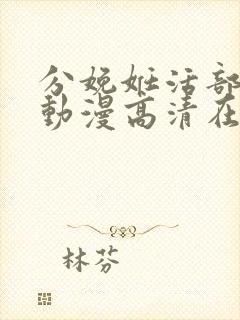 分娩姬活部
動漫高清在
林芬